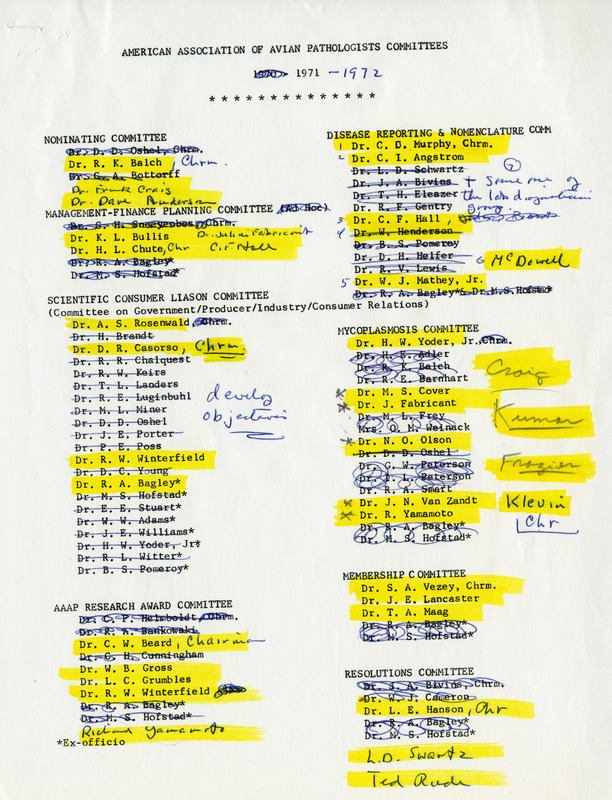 AMERICAN ASSOCIATION OF AVIAN PATHOLOGISTS COMMITTEES
1970- 1971 -1972
* * * * * * * * * * * * * *
NOMINATING COMMITTEE
Dr. D. D. Oshel, Chrm.
Dr. R. K. Balch, Chrm.
Dr. G. A. Bottorff
Dr. Frank Craig
Dr. Dave Anderson
MANAGEMENT-FINANCE PLANNING COMMITTEE (Ad Hoc)
Dr. G. H. Snoeyenbos, Chrm.
Dr. K. L. Bullis Dr. Julius Fabricant
Dr. H. L. Chute, Chr C.F. Hall
Dr. R. A. Bagley*
Dr. M. S. Hofstad*
SCIENTIFIC CONSUMER LIASON COMMITTEE
(Committee on Government/Producer/Industry/Consumer Relations)
Dr. A. S. Rosenwald, Chrm.
Dr. H. Brandt
Dr. D. R. Casorso, Chrm
Dr. R. R. Chalquest
Dr. R. W. Keirs
Dr. T. L. Landers
Dr. R. E. Luginbuhl
Dr. M. L. Miner
Dr. D. D. Oshel
Dr. J. E. Porter
Dr. P. E. Poss
Dr. R. W. Winterfield
Dr. D. C. Young
Dr. R. A. Bagley*
Dr. M. S. Hofstad*
Dr. E. E. Stuart*
Dr. W. W. Adams*
Dr. J. E. Williams*
Dr. H. W. Yoder, Jr*
Dr. R. L. Witter*
Dr. B. S. Pomeroy*
develop
objectives
AAAP RESEARCH AWARD COMMITTEE
Dr. C. F. Helmboldt, Chrm.
Dr. R. A. Bankowski
Dr. C. W. Beard, Chairman
Dr. C. H. Cunningham
Dr. W. B. Gross
Dr. L. C. Grumbles
Dr. R. W. Winterfield
Dr. R. A. Bagley*
Dr. M. S. Hofstad*
Richard Yamamoto
*Ex-officio
DISEASE REPORTING & NOMENCLATURE COMM
1 Dr. C. D. Murphy, Chrm.
2 Dr. C. I. Angstrom
Dr. L. D. Schwartz
Dr. J. A. Bivins + someone of
Dr. T. H. Eleazer the lab diagnostician
Dr. R. E. Gentry group
3 Dr. C. F. Hall,
4 Dr. W. Henderson
Dr. B. S. Pomeroy
Dr. D. H. Helfer 6 McDowell
Dr. R. V. Lewis
5 Dr. W. J. Mathey, Jr.
Dr. R. A. Bagley* & Dr.M.S.Hofstad*
MYCOPLASMOSIS COMMITTEE
Dr. H. W. Yoder, Jr., Chrm.
Dr. H. E. Adler
Dr. R. K. Balch
Dr. R. E. Barnhart Craig
Dr. M. S. Cover
Dr. J. Fabricant
Dr. M. L. Frey Kumar
Mrs. O. M. Weinack
Dr. N. O. Olson
Dr. D. D. Oshel
Dr. G. W. Peterson Frazier
Dr. I. L. Peterson
Dr. R. A. Smart
Dr. J. N. Van Zandt Kleven
Dr. R. Yamamoto Chr
Dr. R. A. Bagley*
Dr. M. S. Hofstad*
MEMBERSHIP COMMITTEE
Dr. S. A. Vezey, Chrm.
Dr. J. E. Lancaster
Dr. T. A. Maag
Dr. R. A. Bagley*
Dr. M. S. Hofstad*
RESOLUTIONS COMMITTEE
Dr. J. A. Bivins, Chrm.
Dr. W. J. Cameron
Dr. L. E. Hanson, Chr
Dr. R. A. Bagley*
Dr. M. S. Hofstad*
L.D. Swartz
Ted Rude